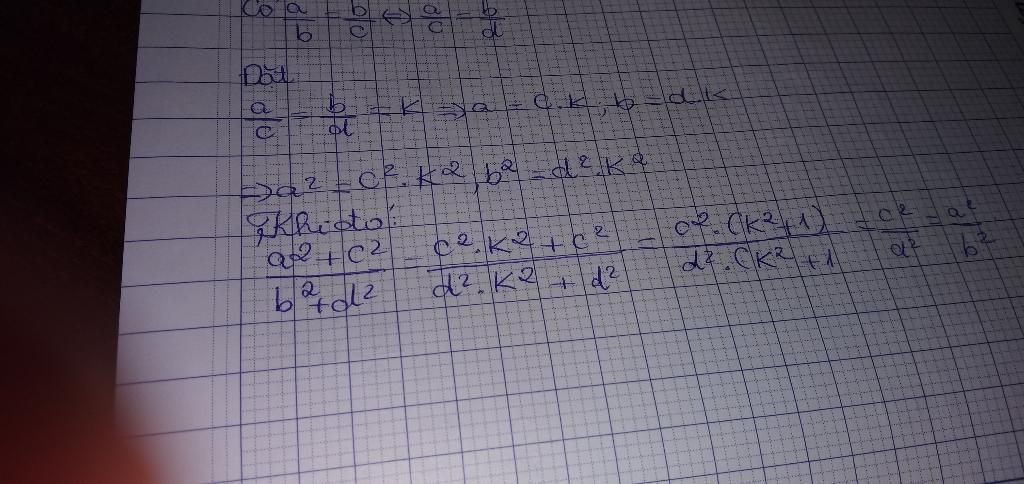 Có a/b = b/c ↔ a/c = b/d
Đặt
a/c = b/d = k ⇒ a = c.k, b = d.k
⇒ a² = c².k², b² = d².k²
Khi đó:
(a²+c²)/(b²+d²) = (c².k²+c²)/(d².k²+d²) = c².(k²+1)/d².(k²+1 = c²/d² = a²/b²